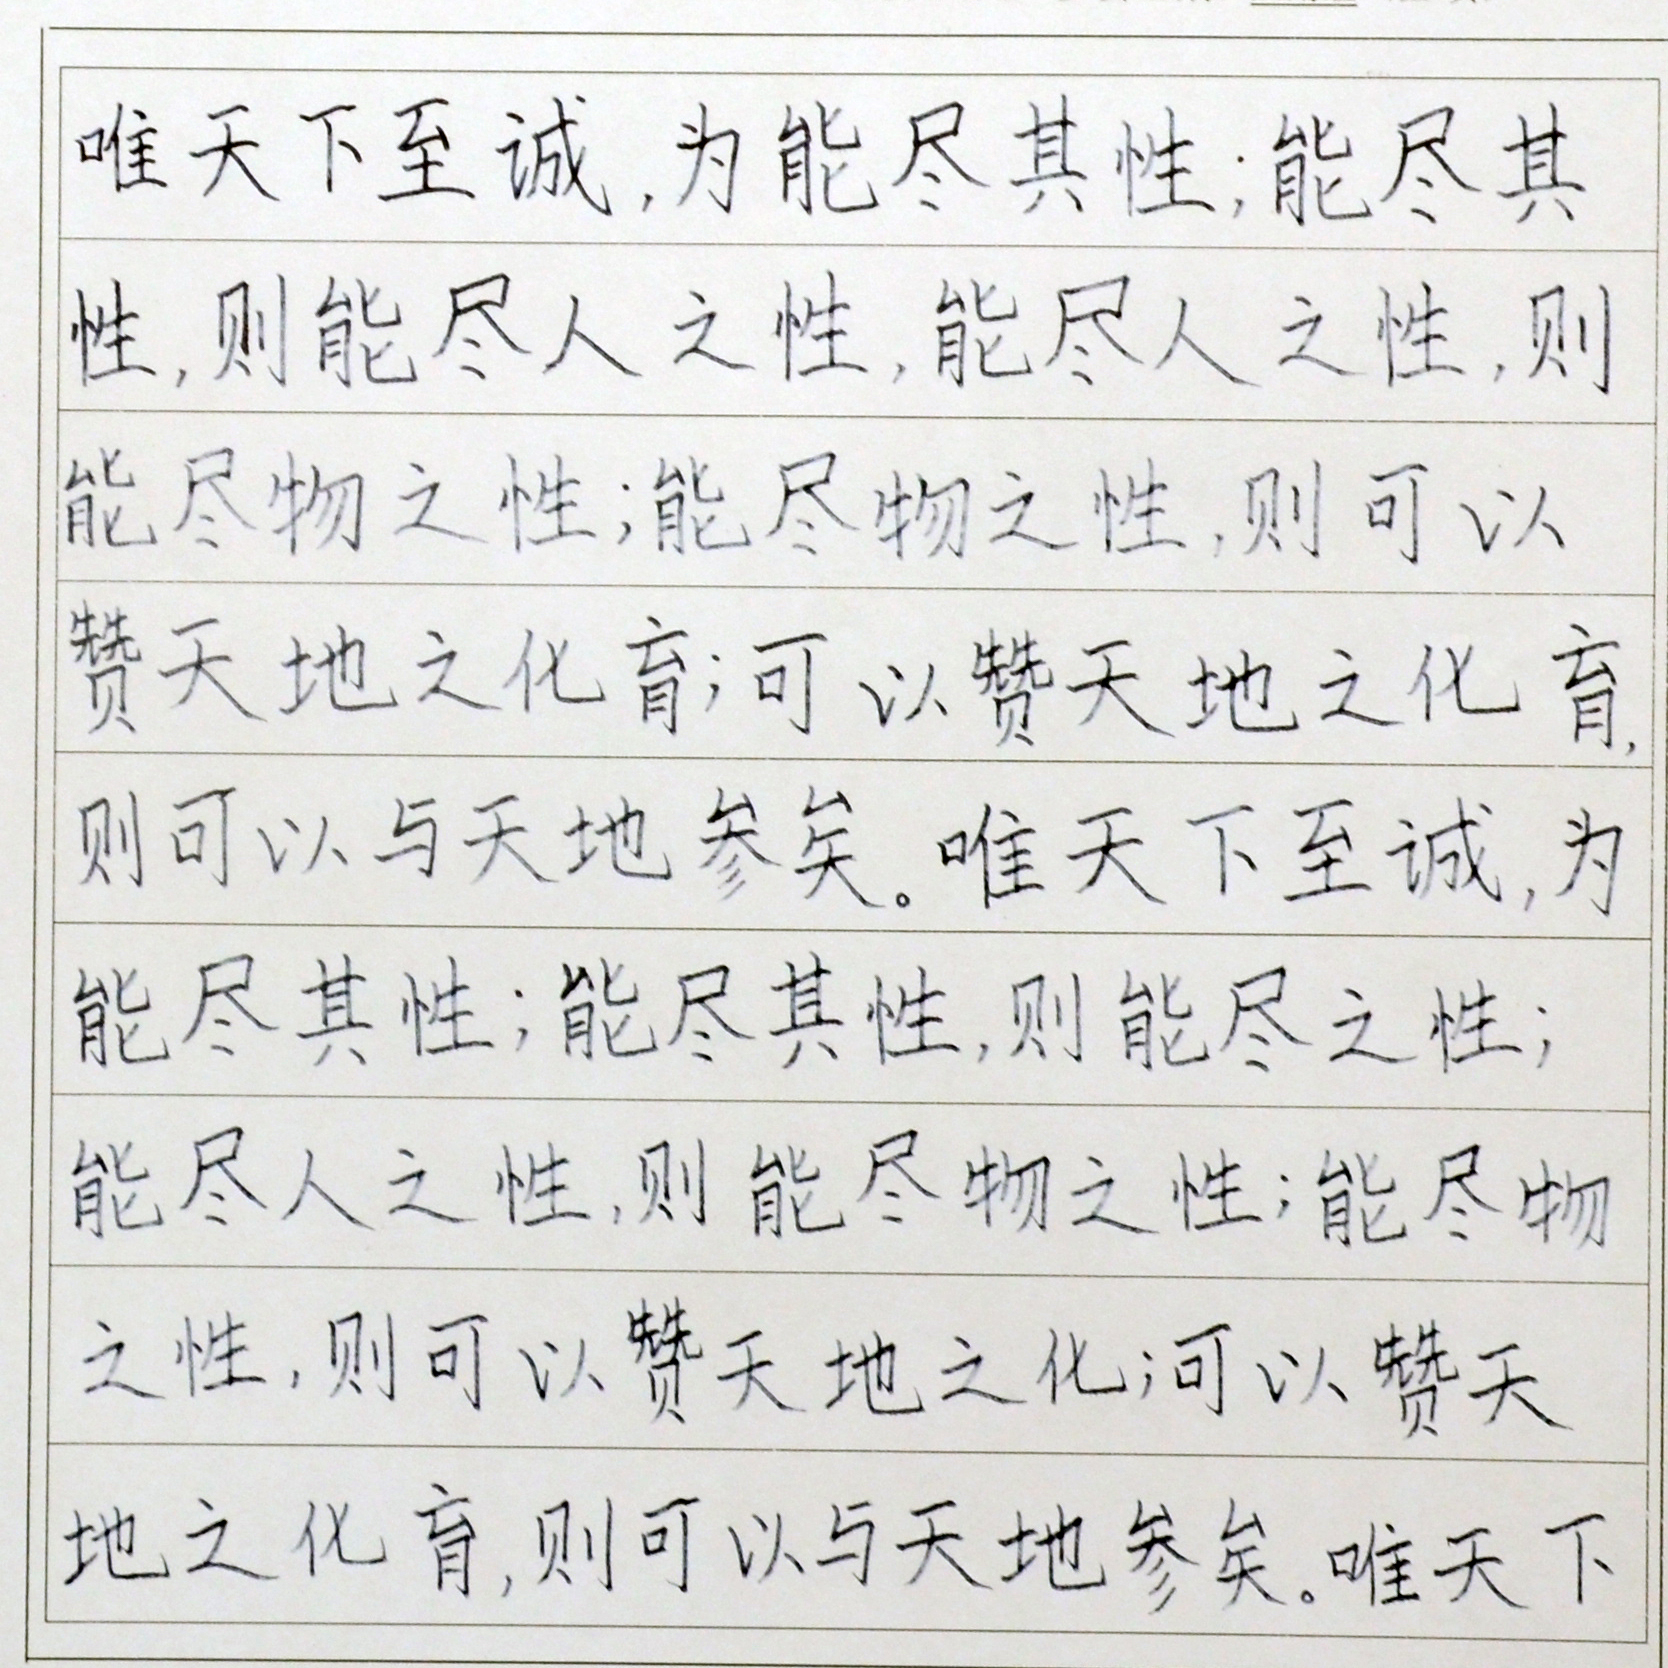 唯天下至诚,为能尽其性;能尽其
性,则能尽人之性,能尽人之性,则
能尽物之性;能尽物之性,则可以
赞天地之化育;可以赞天地之化育,
则可以与天地参矣。唯天下至诚,为
能尽其性;能尽其性,则能尽之性;
能尽人之性,则能尽物之性;能尽物
之性,则可以赞天地之化;可以赞天
地之化育,则可以与天地参矣。唯天下